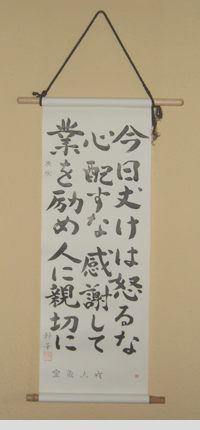 今日丈けは怒るな
心配すな感謝して
業を励め人に親切に